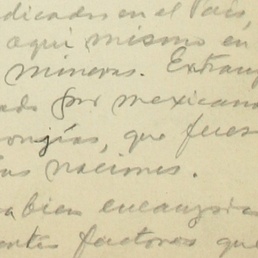 dicados en el País,
aquí mismo en
mineros. Extranj
ado por mexicano
ongías, que fues
as naciones.
bien encauzada
entes factores que